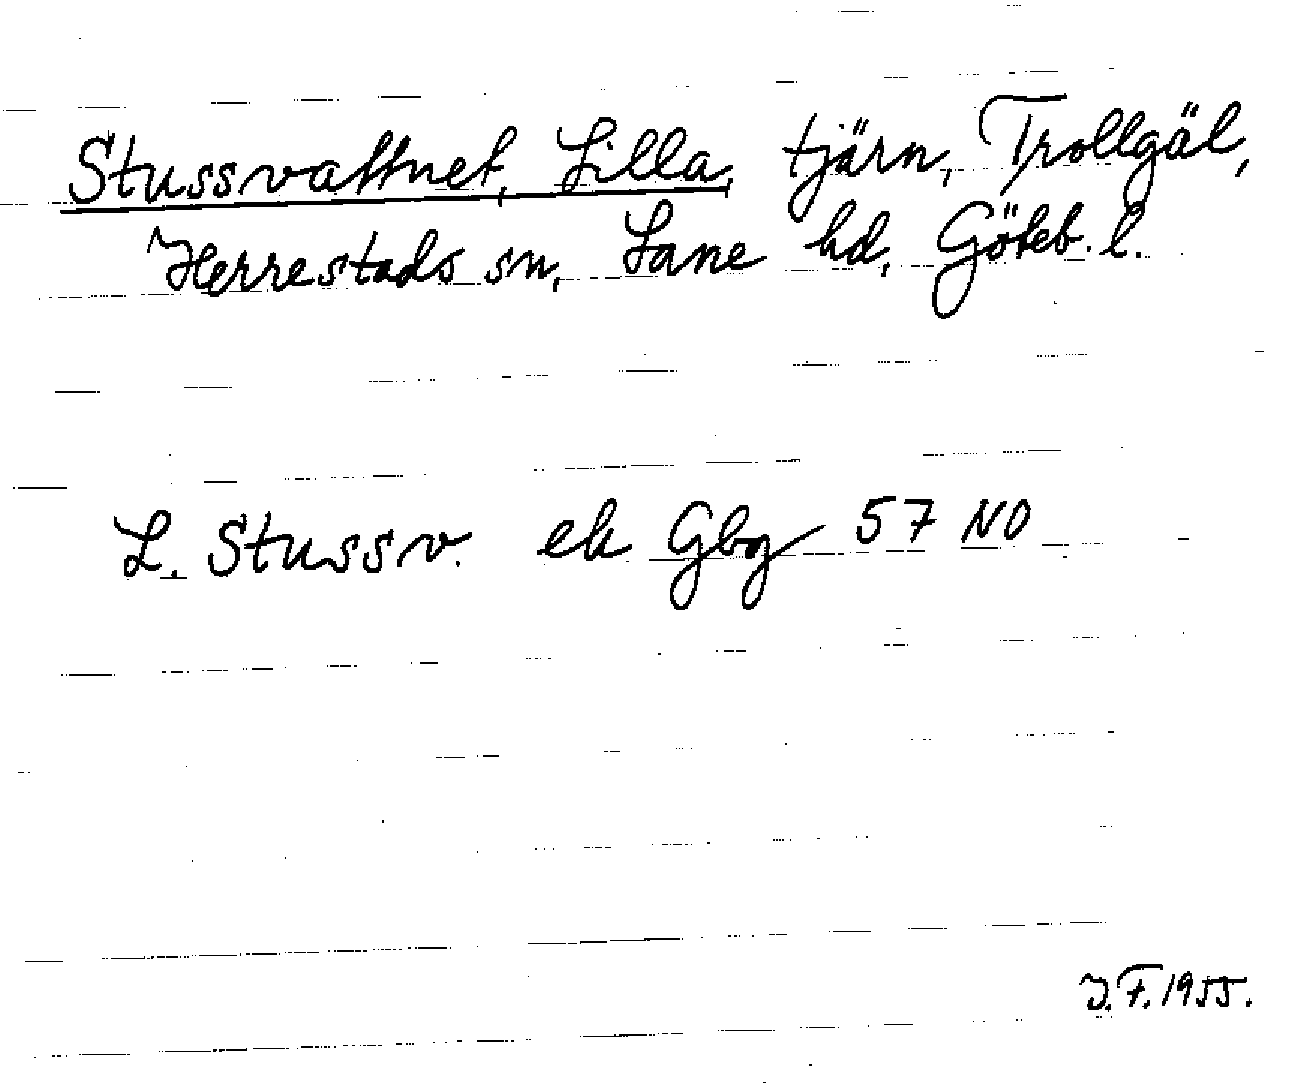 Stussvattnet, Lilla, tjärn, Trollgäl,
Herrestads sn, Lane hd, Göteb. l.
L. Stussv. ek Gbg 57 NO
J.F. 1955.